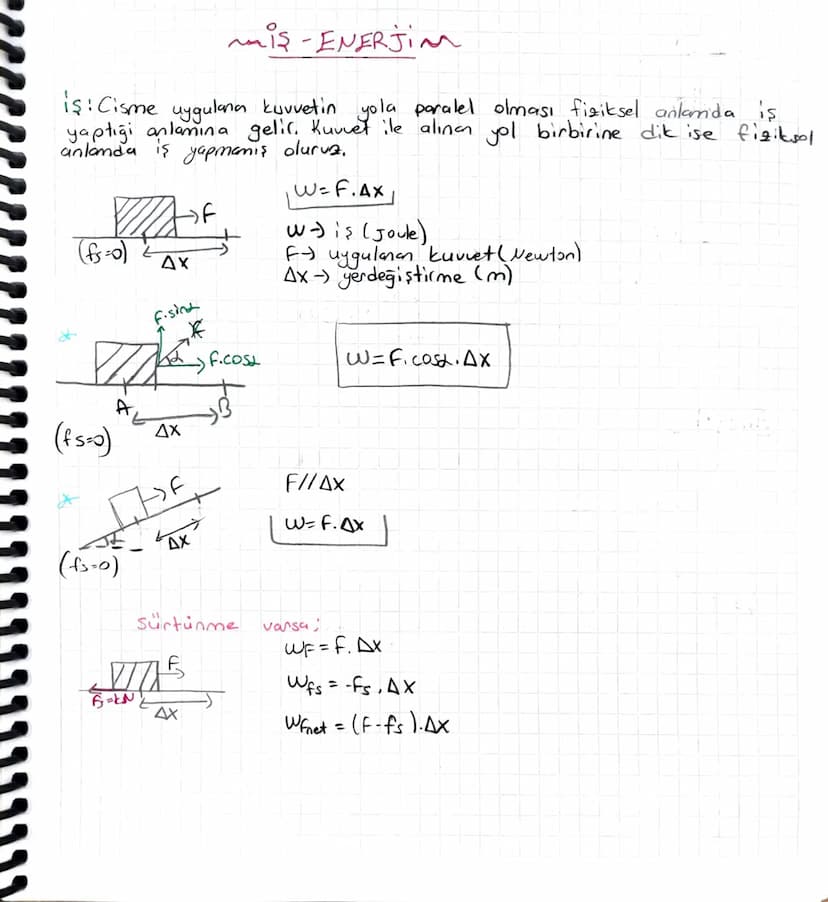 İŞ-ENERJİ
İŞ: Cisme uygulanan kuvvetin yola paralel olması fiziksel anlamda iş
yaptığı anlamına gelir. Kuvvet ile alınan yol birbirine dik ise fiziksel
anlamda iş yapmamış oluruz.
F
(fs=0)
Δx
W=F.Δx
W→ iş (Joule)
F→ uygulanan kuvvet (Newton)
Δx→ yerdeğiştirme (m)
F.sinα
F
α
F.cosα
A
B
Δx
(fs=0)
W=F.cosα.Δx
F
α
Δx
(fs=0)
F//Δx
W=F.Δx
Sürtünme varsa;
F
fs=kN
Δx
WF = F.Δx
Wfs = -fs.Δx
WFnet = (F-fs).Δx